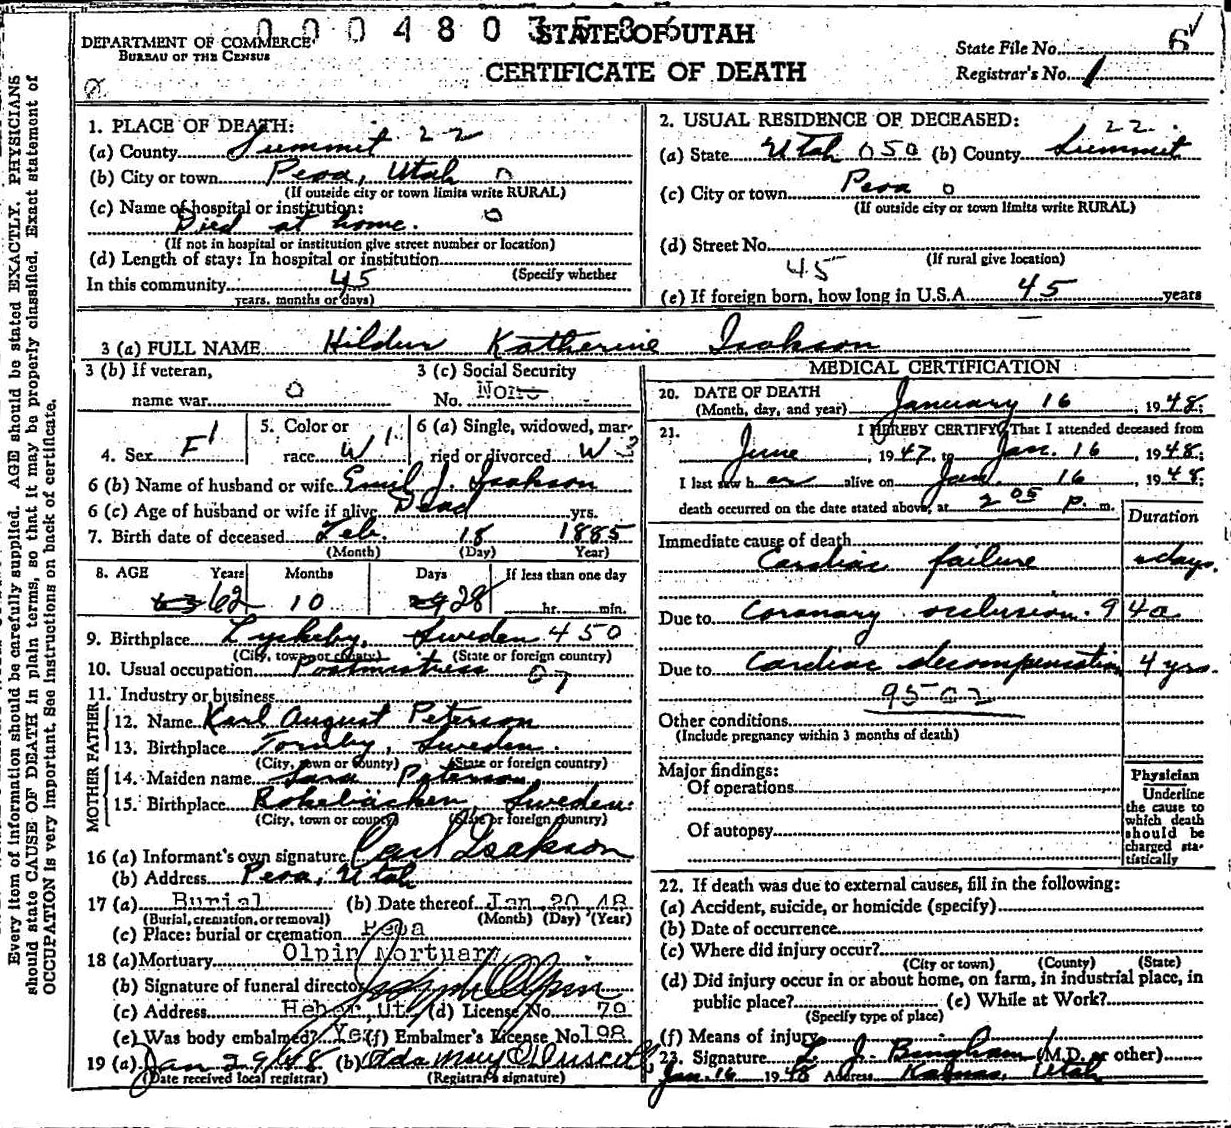 00048035 86
STATE OF UTAH
DEPARTMENT OF COMMERCE
BUREAU OF THE CENSUS
CERTIFICATE OF DEATH
State File No. 6
Registrar's No. 1
1. PLACE OF DEATH:
(a) County Summit 22
(b) City or town Peoa, Utah 0
(If outside city or town limits write RURAL)
(c) Name of hospital or institution: 0
Died at home.
(If not in hospital or institution give street number or location)
(d) Length of stay: In hospital or institution
(Specify whether
In this community 45
years, months or days)
2. USUAL RESIDENCE OF DECEASED:
22
(a) State Utah 050 (b) County Summit
(c) City or town Peoa 0
(If outside city or town limits write RURAL)
(d) Street No.
45 (If rural give location)
(e) If foreign born, how long in U.S.A. 45 years
3 (a) FULL NAME Hildur Katherine Isakson
3 (b) If veteran,
name war 0
3 (c) Social Security
No. None
4. Sex F 1
5. Color or
race W 1
6 (a) Single, widowed, mar-
ried or divorced W 3
6 (b) Name of husband or wife Emil J. Isakson
6 (c) Age of husband or wife if alive Dead yrs.
7. Birth date of deceased Feb. 18 1885
(Month) (Day) Year)
8. AGE Years Months Days If less than one day
63 62 10 29 28 hr. min.
9. Birthplace Lyckeby, Sweden 450
(City, town or county) (State or foreign country)
10. Usual occupation Postmistress 07
11. Industry or business
FATHER
12. Name Karl August Peterson
13. Birthplace Tornby, Sweden.
(City, town or county) (State or foreign country)
MOTHER
14. Maiden name Sara Peterson
15. Birthplace Sweden.
(City, town or county) (State or foreign country)
16 (a) Informant's own signature Carl Isakson
(b) Address Peoa, Utah
17 (a) Burial (b) Date thereof Jan 20 48
(Burial, cremation, or removal) (Month) (Day) (Year)
(c) Place: burial or cremation Peoa
18 (a) Mortuary Olpin Mortuary
(b) Signature of funeral director Joseph Olpin
(c) Address Heber, Ut. (d) License No. 79
(e) Was body embalmed? Yes (f) Embalmer's License No. 198
19 (a) Jan 29/48 (b) Ada Mary O'Driscoll
(Date received local registrar) (Registrar's signature)
MEDICAL CERTIFICATION
20. DATE OF DEATH
(Month, day, and year) January 16, 1948;
21. I HEREBY CERTIFY, That I attended deceased from
June, 1947, to Jan. 16, 1948;
I last saw her alive on Jan. 16, 1948;
death occurred on the date stated above, at 2 05 P. m.
Duration
Immediate cause of death
Cardiac failure days.
Due to Coronary occlusion. 94a
Due to Cardiac decompensation 4 yrs.
95-02
Other conditions
(Include pregnancy within 3 months of death)
Major findings:
Of operations
Of autopsy
Physician
Underline
the cause to
which death
should be
charged sta-
tistically
22. If death was due to external causes, fill in the following:
(a) Accident, suicide, or homicide (specify)
(b) Date of occurrence
(c) Where did injury occur?
(City or town) (County) (State)
(d) Did injury occur in or about home, on farm, in industrial place, in
public place? (e) While at Work?
(Specify type of place)
(f) Means of injury
23. Signature L. J. Bingham (M.D. or other)
Jan. 16 1948 Address Kamas, Utah
Every item of information should be carefully supplied. AGE should be stated EXACTLY. PHYSICIANS
should state CAUSE OF DEATH in plain terms, so that it may be properly classified. Exact statement of
OCCUPATION is very important. See instructions on back of certificate.